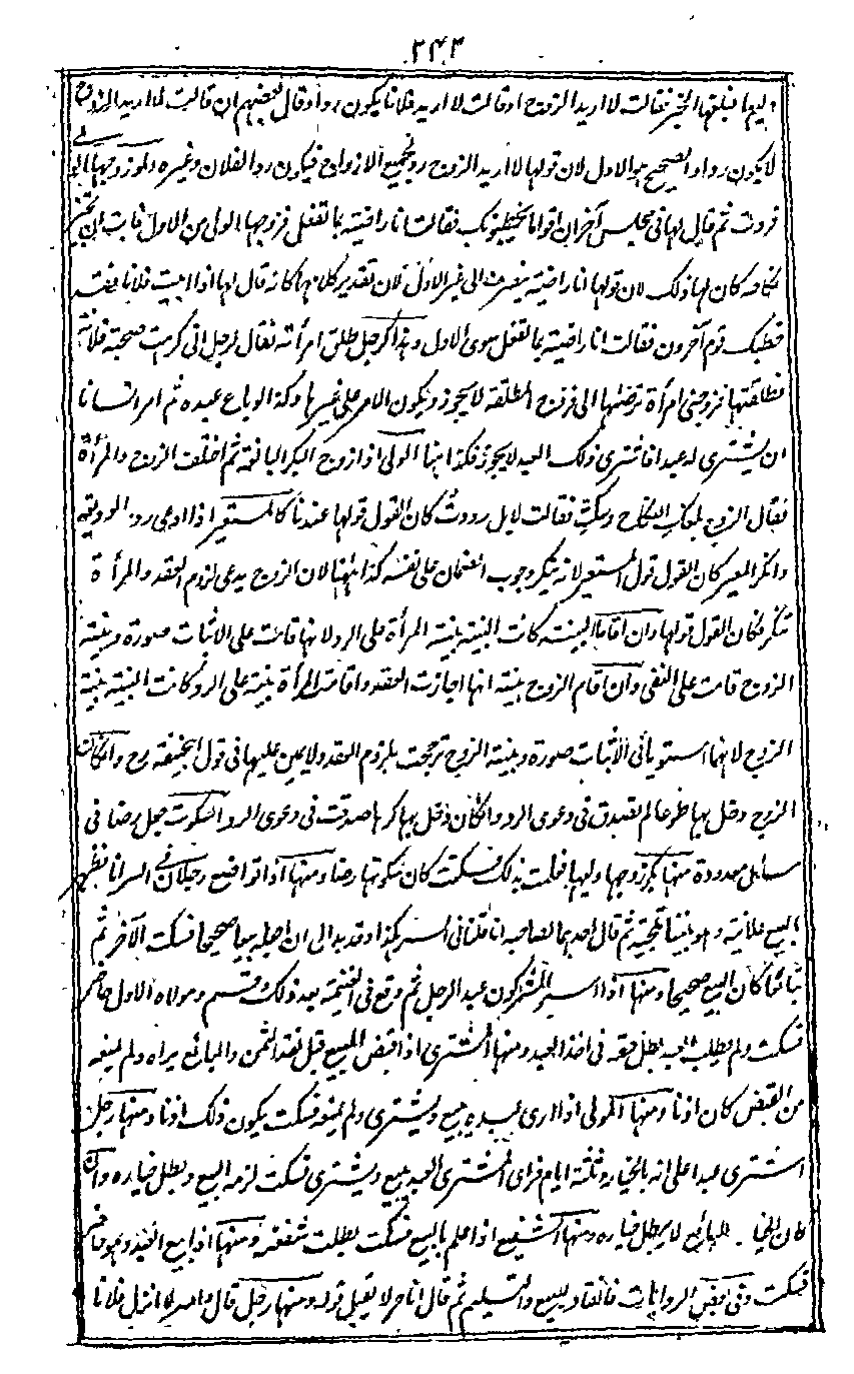 ٢٤٣
وليها فبلغها الخبر فقالت لا اريد الزوج او قالت لا اريد فلانا يكون ردا وقال بعضهم ان قالت لا اريد الزوج
لا يكون ردا والصحيح هو الاول لان قولها لا اريد الزوج رد لجميع الازواج فيكون ردا لفلان وغيره ولو زوجها الولي
فردت ثم قال لها في مجلس آخر ان اقواما يخطبونك فقالت انا راضية بما تفعل فزوجها الولي من الاول فابت ان تجيز
نكاحه كان لها ذلك لان قولها انا راضية ينصرف الى غير الاول لان تقدير كلامها كانه قال لها اذا ابيت فلانا فقد
خطبك قوم آخرون فقالت انا راضية بما تفعل سوى الاول وهذا كرجل طلق امرأته فقال لرجل اني كرهت صحبة فلانة
فطلقتها فزوجني امرأة ترضاها لي فزوجه المطلقة لا يجوز ويكون الامر على غيرها وكذا لو باع عبده ثم امر انسانا
ان يشتري له عبدا فاشترى ذلك العبد لا يجوز فكذا هنا الولي اذا زوج البكر البالغة ثم اختلف الزوج والمرأة
فقال الزوج بلغك النكاح وسكت فقالت لا بل رددت كان القول قولها عندنا كالمستعير اذا ادعى رد الوديعة
وانكر المعير كان القول قول المستعير لانه ينكر وجوب الضمان على نفسه كذا ههنا لان الزوج يدعي لزوم العقد والمرأة
تنكر فكان القول قولها وان اقاما البينة كانت البينة بينة المرأة على الرد لانها قامت على الاثبات صورة وبينة
الزوج قامت على النفي وان اقام الزوج بينة انها اجازت العقد واقامت المرأة بينة على الرد كانت البينة بينة
الزوج لانهما استويا في الاثبات صورة وبينة الزوج ترجحت بلزوم العقد ولا يمين عليها في قول ابيحنيفة رح وان كان
الزوج دخل بها طوعا لم تصدق في دعوى الرد وان كان دخل بها كرها صدقت في دعوى الرد السكوت جعل رضا في
مسائل معدودة منها بكر زوجها وليها فعلمت بذلك فسكتت كان سكوتها رضا ومنها اذا تواضع رجلان في السر ان يظهر
البيع علانية وهو بيننا تلجئة ثم قال احدهما لصاحبه انا قلنا في السر كذا وقد بدا لي ان اجعله بيعا صحيحا فسكت الآخر ثم
تبايعا كان البيع صحيحا ومنها اذا اسر المشركون عبدا لرجل ثم وقع في الغنيمة بعد ذلك وقسم ومولاه الاول حاضر
فسكت ولم يطلب العبد بطل حقه في اخذ العبد ومنها المشتري اذا قبض المبيع قبل نقد الثمن والبائع يراه ولم يمنعه
من القبض كان اذنا ومنها المولى اذا رأى عبده يبيع ويشتري ولم يمنعه فسكت يكون ذلك اذنا ومنها رجل
اشترى عبدا على انه بالخيار ثلثة ايام فرأى المشتري العبد يبيع ويشتري فسكت لزمه البيع وبطل خياره وان
كان الخيار للبائع لا يبطل خياره ومنها الشفيع اذا علم بالبيع فسكت بطلت شفعته ومنها اذا بيع العبد وهو حاضر
فسكت وفي بعض الروايات فانقاد للبيع والتسليم ثم قال انا حر لا يقبل قوله ومنها رجل قال والله لا انزل فلانا